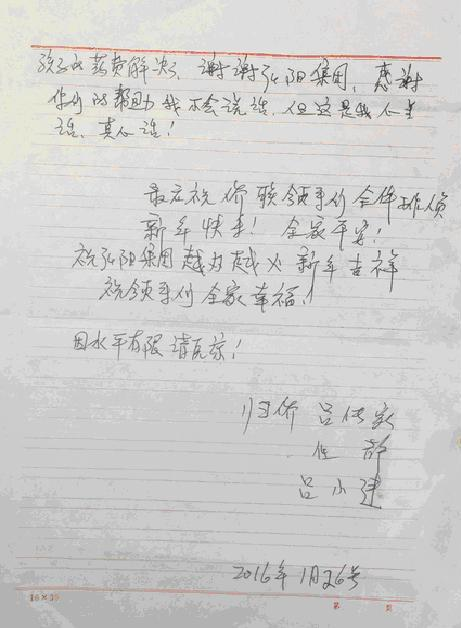 孩子的药费解决, 谢谢弘阳集团, 感谢
你们的帮助我不会说话, 但这是我心里
话, 真心话!
最后祝 侨联领导们 全体 人员
新年快乐! 全家平安!
祝弘阳集团越办越火 新年吉祥
祝领导们 全家幸福!
因水平有限请原谅!
归侨 吕传家
任 静
吕小建
2016年1月26号
第 页